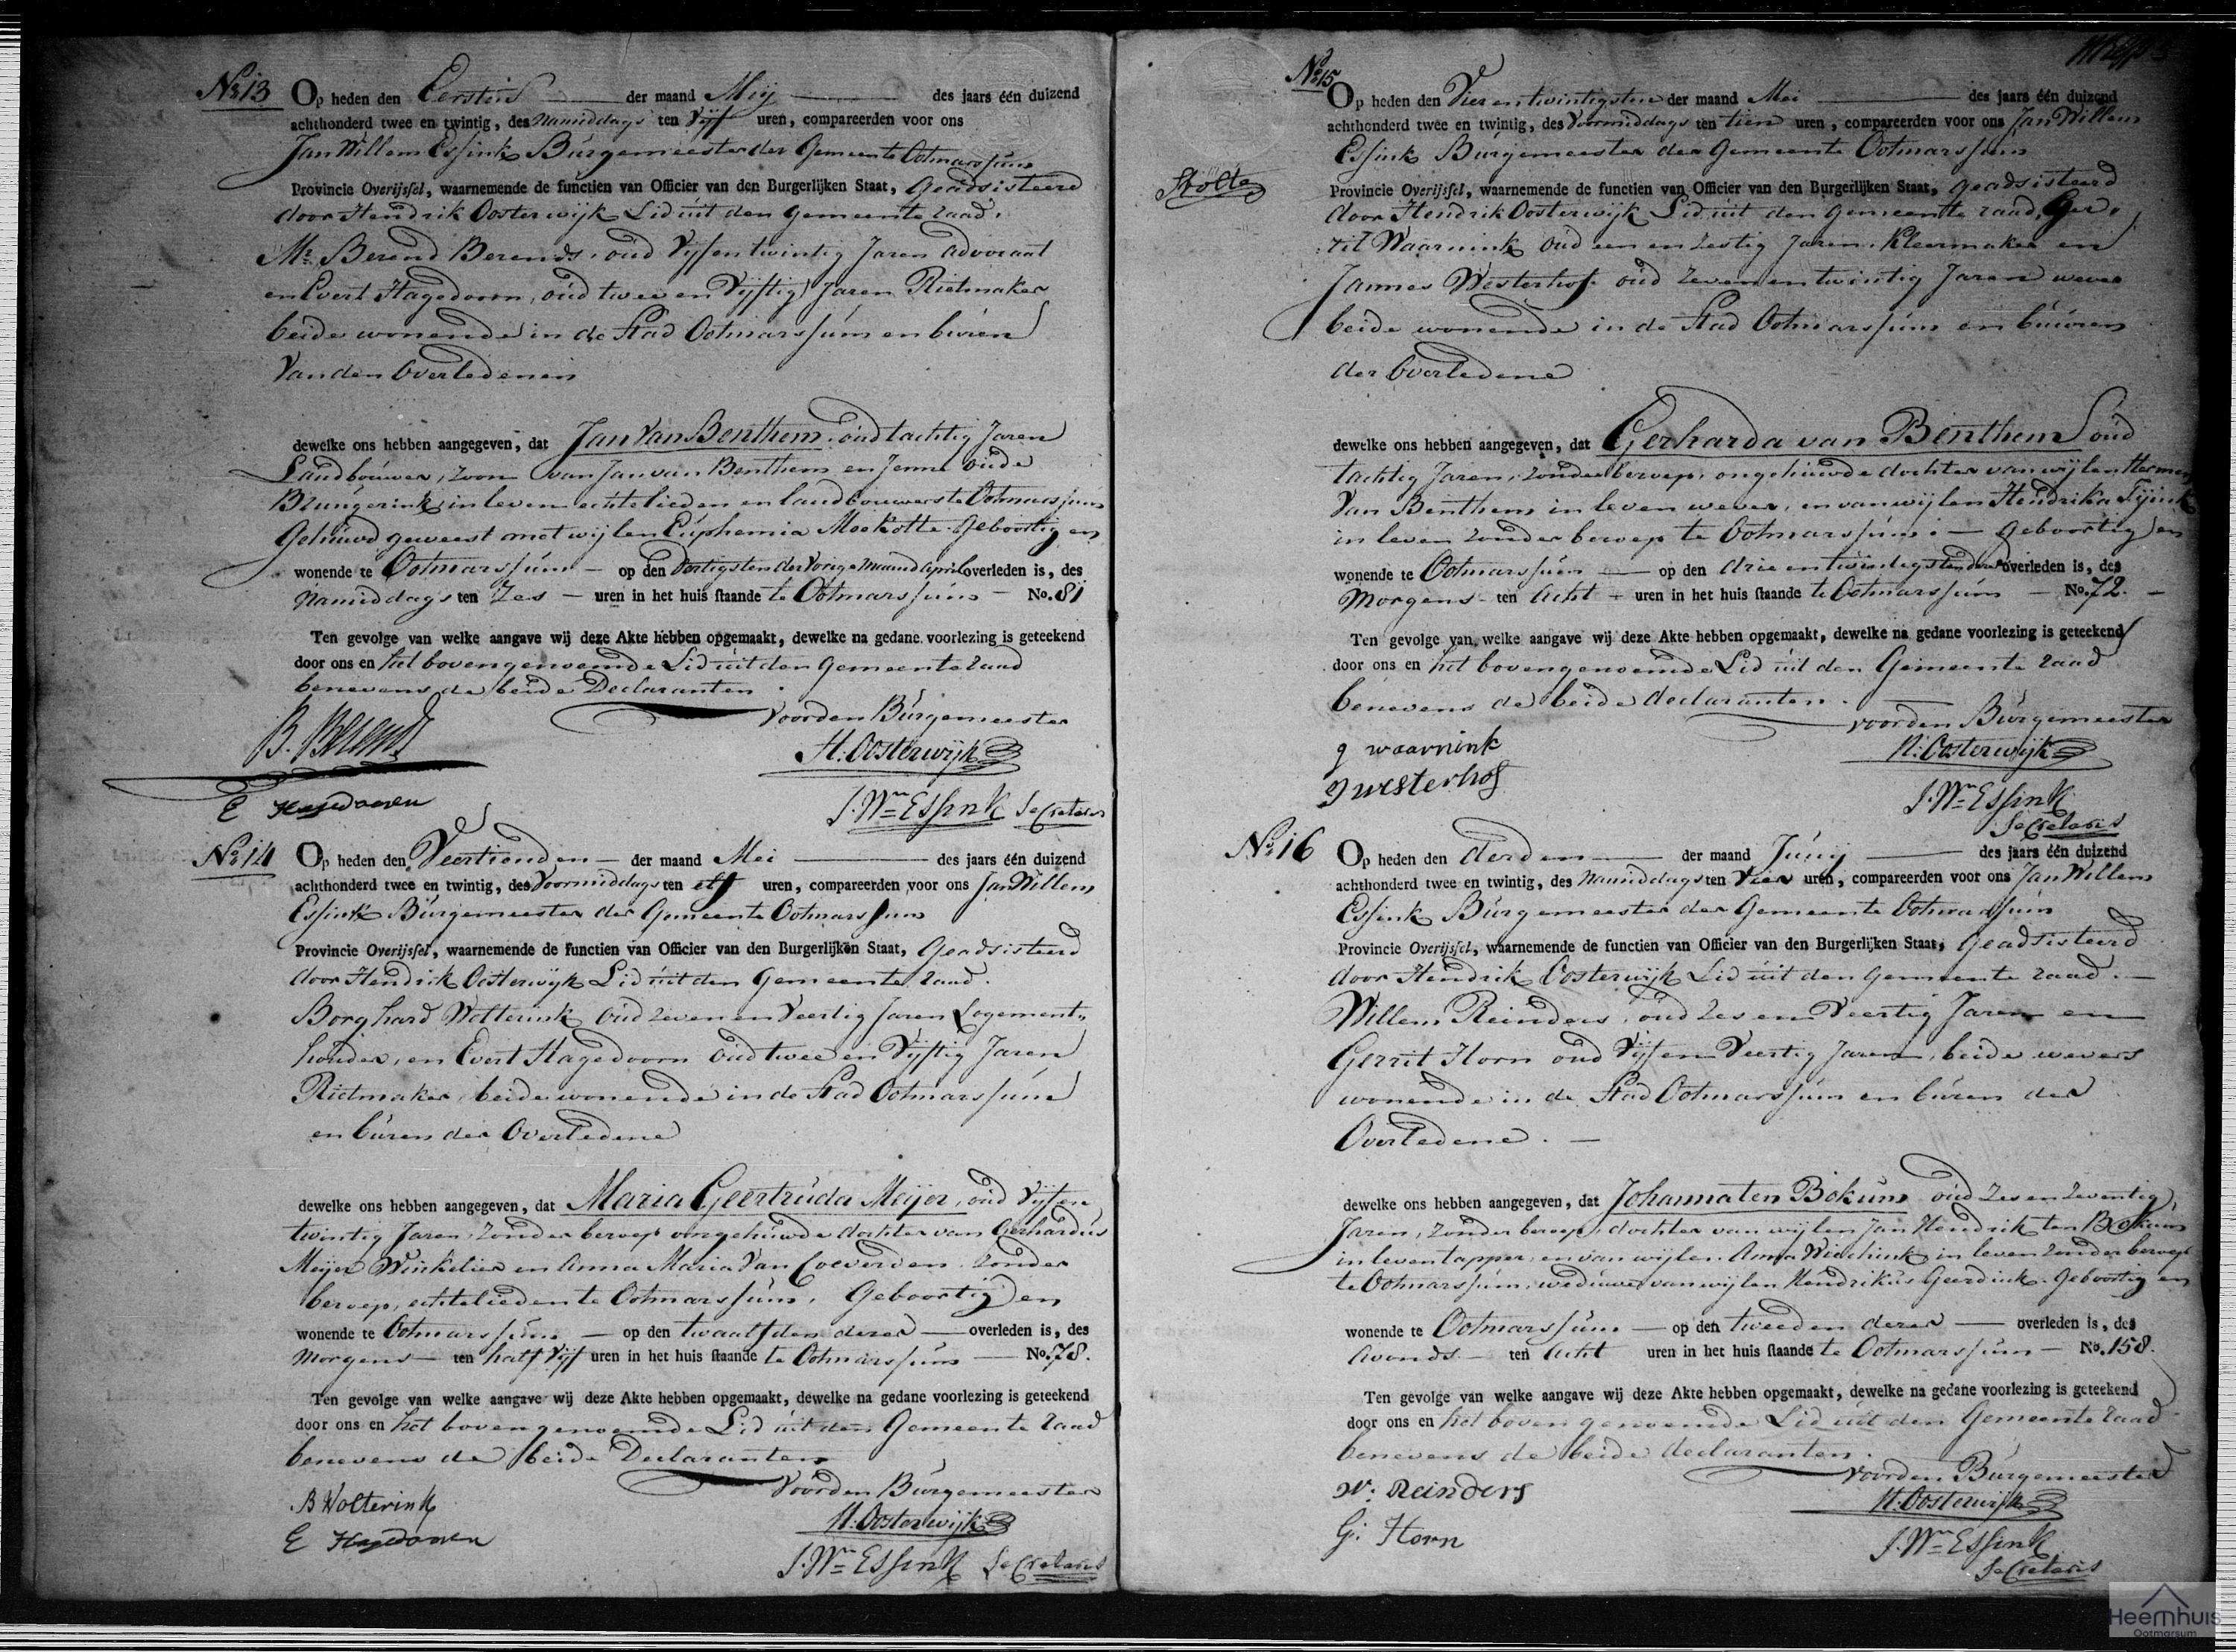 No 13
Op heden den Eersten der maand Mey des jaars één duizend
achthonderd twee en twintig, des Namiddags ten Vijf uren, compareerden voor ons
Jan Willem Essink Burgemeester der Gemeente Ootmarssum
Provincie Overijssel, waarnemende de functien van Officier van den Burgerlijken Staat, Geadsisteerd
door Hendrik Oosterwijk Lid uit den Gemeente raad.
Mr. Berend Berends, oud Vijfentwintig Jaren advocaat
en Evert Hagedoorn, oud twee en Vijftig Jaren Rietmaker
beide wonende in de Stad Ootmarssum en buren
Van den Overledenen
dewelke ons hebben aangegeven, dat Jan Van Benthem, oud tachtig Jaren
Landbouwer, zoon van Jan van Benthem en Jenne oude
in leven echtelieden en landbouwers te Ootmarssum
Gehuwd geweest met wijlen Euphemia Mockotte Geboortig en
wonende te Ootmarssum op den dertigsten der Vorige Maand April overleden is, des
Namiddags ten Zes uren in het huis staande te Ootmarssum No. 81
Ten gevolge van welke aangave wij deze Akte hebben opgemaakt, dewelke na gedane voorlezing is geteekend
door ons en het bovengenoemde Lid uit den Gemeente raad
benevens de beide Declaranten
Voor den Burgemeester
B. Berends
H. Oosterwijk
E Hagedooren
J. Wm Essink Secretaris
No 14
Op heden den Veertienden der maand Mei des jaars één duizend
achthonderd twee en twintig, des Voormiddags ten elf uren, compareerden voor ons Jan Willem
Essink Burgemeester der Gemeente Ootmarssum
Provincie Overijssel, waarnemende de functien van Officier van den Burgerlijken Staat, Geadsisteerd
door Hendrik Oosterwijk Lid uit den Gemeente raad.
Borghard Wolterink oud zeven en Veertig Jaren Logement,,
houder, en Evert Hagedoorn oud twee en Vijftig Jaren
Rietmaker, beide wonende in de Stad Ootmarssum
en buren der Overledene
dewelke ons hebben aangegeven, dat Maria Geertruida Meijer, oud Vijf en
twintig Jaren, zonder beroep ongehuwde dochter van Gerhardus
Meijer Winkelier en Anna Maria Van Coeverden zonder
beroep, echtelieden te Ootmarssum, Geboortig en
wonende te Ootmarssum op den twaalfden dezer overleden is, des
Morgens ten half Vijf uren in het huis staande te Ootmarssum No. 78.
Ten gevolge van welke aangave wij deze Akte hebben opgemaakt, dewelke na gedane voorlezing is geteekend
door ons en het bovengenoemde Lid uit den Gemeente raad
benevens de beide Declaranten
Voor den Burgemeester
B Wolterink
H. Oosterwijk
E Hagedooren
J. Wm Essink Secretaris
No 15
Stolte
Op heden den Vier en twintigsten der maand Mei des jaars één duizend
achthonderd twee en twintig, des Voormiddags ten tien uren, compareerden voor ons Jan Willem
Essink Burgemeester der Gemeente Ootmarssum
Provincie Overijssel, waarnemende de functien van Officier van den Burgerlijken Staat, geadsisteerd
door Hendrik Oosterwijk Lid uit den Gemeente raad, Ger,
rit Waarnink oud een en zestig Jaren, Kleermaker en
Jannes Westerhof oud zeven en twintig Jaren wever
beide wonende in de Stad Ootmarssum en buuren
der Overledene
dewelke ons hebben aangegeven, dat Gerharda van Benthem oud
tachtig Jaren, zonder beroep, ongehuwde dochter van wijlen Hermen
Van Benthem in leven wever, en van wijlen Hendrika
in leven zonder beroep te Ootmarssum. geboortig en
wonende te Ootmarssum op den drie en twintigsten dezer overleden is, des
Morgens ten Acht uren in het huis staande te Ootmarssum No. 72.
Ten gevolge van welke aangave wij deze Akte hebben opgemaakt, dewelke na gedane voorlezing is geteekend
door ons en het bovengenoemde Lid uit den Gemeente raad
benevens de beide declaranten.
voor den Burgemeester
g waarnink
H. Oosterwijk
J westerhof
J. Wm Essink
Secretaris
No 16
Op heden den derden der maand Junij des jaars één duizend
achthonderd twee en twintig, des Namiddags ten Vier uren, compareerden voor ons Jan Willem
Essink Burgemeester der Gemeente Ootmarssum
Provincie Overijssel, waarnemende de functien van Officier van den Burgerlijken Staat, Geadsisteerd
door Hendrik Oosterwijk Lid uit den Gemeente raad.
Willem Reinders, oud Zes en Veertig Jaren en
Gerrit Horn oud Vijf en Veertig Jaren, beide wevers
wonende in de Stad Ootmarssum en buren der
Overledene.
dewelke ons hebben aangegeven, dat Johanna ten Bokum oud Zes en Zeventig
Jaren, zonder beroep, dochter van wijlen Jan Hendrik ten Bokum
in leven tapper, en van wijlen Anna in leven zonder beroep
te Ootmarssum, weduwe van wijlen Hendrikus Geerdink. Geboortig en
wonende te Ootmarssum op den tweeden dezer overleden is, des
Avonds ten Acht uren in het huis staande te Ootmarssum No. 158.
Ten gevolge van welke aangave wij deze Akte hebben opgemaakt, dewelke na gedane voorlezing is geteekend
door ons en het bovengenoemde Lid uit den Gemeente raad
benevens de beide declaranten.
Voor den Burgemeester
W: Reinders
H. Oosterwijk
G: Horn
J. Wm Essink
Secretaris
Heemhuis
Ootmarsum